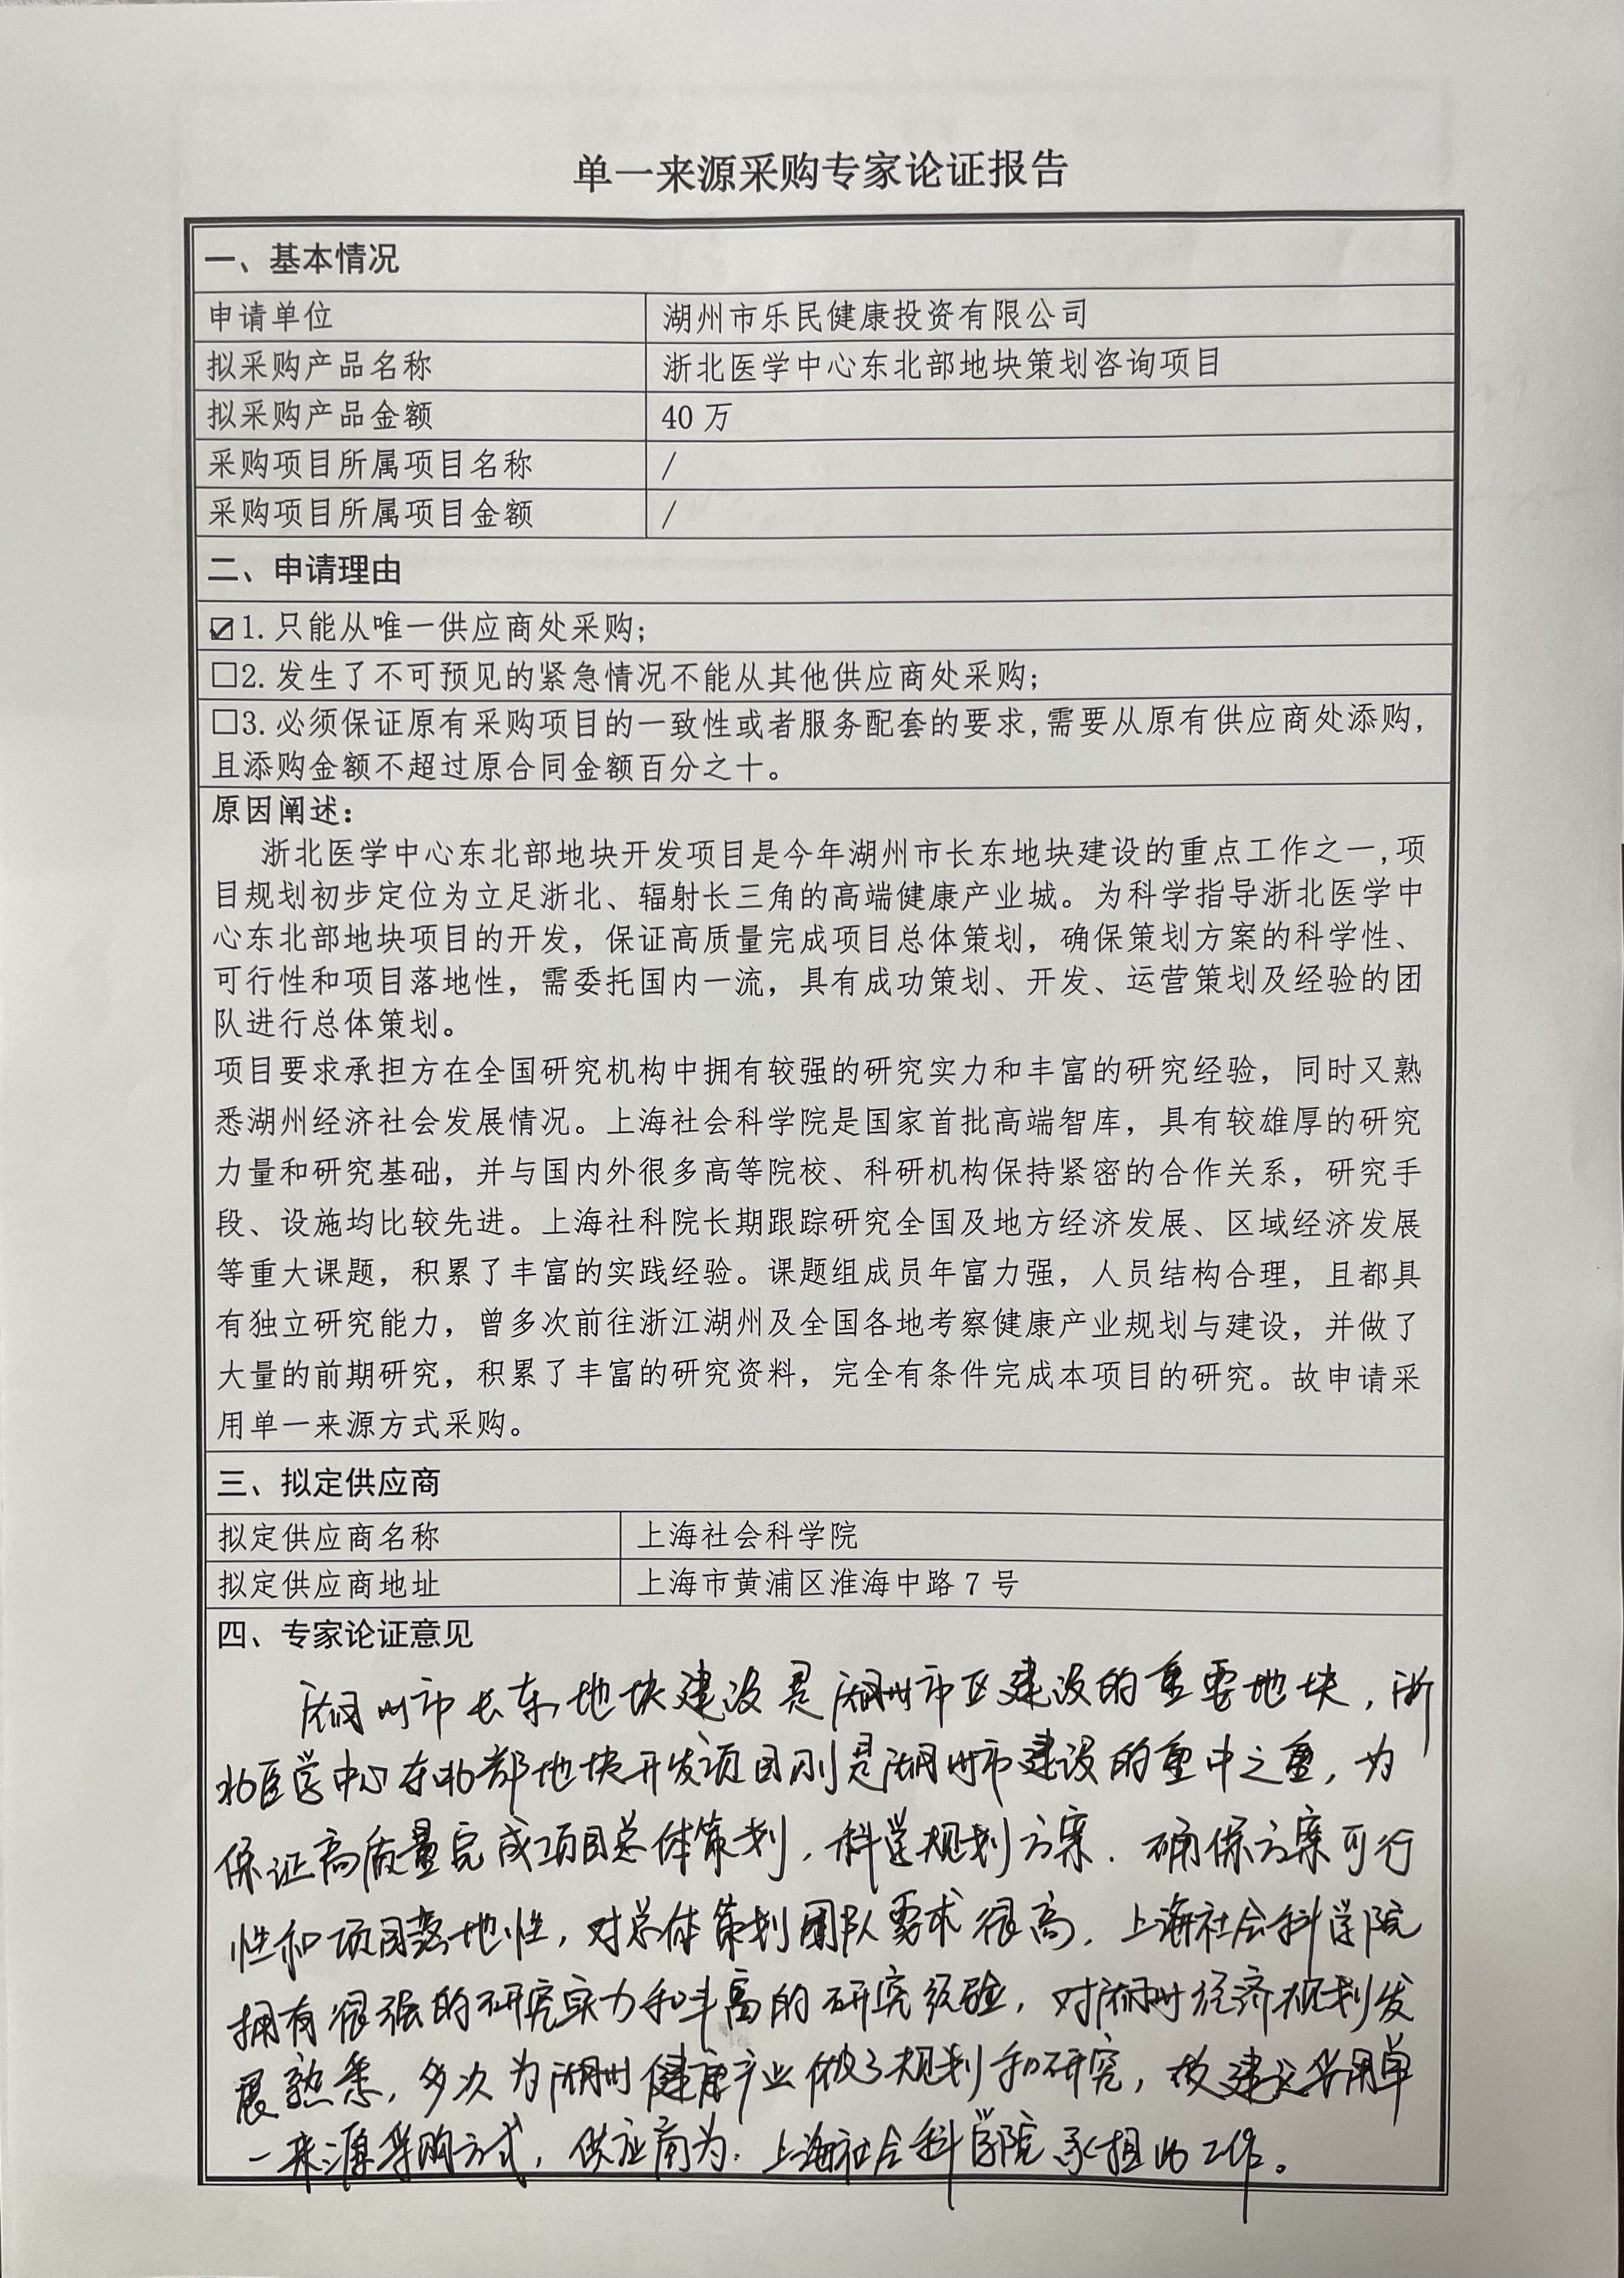 单一来源采购专家论证报告
一、基本情况
申请单位 湖州市乐民健康投资有限公司
拟采购产品名称 浙北医学中心东北部地块策划咨询项目
拟采购产品金额 40 万
采购项目所属项目名称 /
采购项目所属项目金额 /
二、申请理由
☑1. 只能从唯一供应商处采购;
□2. 发生了不可预见的紧急情况不能从其他供应商处采购;
□3. 必须保证原有采购项目的一致性或者服务配套的要求,需要从原有供应商处添购,
且添购金额不超过原合同金额百分之十。
原因阐述：
浙北医学中心东北部地块开发项目是今年湖州市长东地块建设的重点工作之一,项
目规划初步定位为立足浙北、辐射长三角的高端健康产业城。为科学指导浙北医学中
心东北部地块项目的开发，保证高质量完成项目总体策划，确保策划方案的科学性、
可行性和项目落地性，需委托国内一流，具有成功策划、开发、运营策划及经验的团
队进行总体策划。
项目要求承担方在全国研究机构中拥有较强的研究实力和丰富的研究经验，同时又熟
悉湖州经济社会发展情况。上海社会科学院是国家首批高端智库，具有较雄厚的研究
力量和研究基础，并与国内外很多高等院校、科研机构保持紧密的合作关系，研究手
段、设施均比较先进。上海社科院长期跟踪研究全国及地方经济发展、区域经济发展
等重大课题，积累了丰富的实践经验。课题组成员年富力强，人员结构合理，且都具
有独立研究能力，曾多次前往浙江湖州及全国各地考察健康产业规划与建设，并做了
大量的前期研究，积累了丰富的研究资料，完全有条件完成本项目的研究。故申请采
用单一来源方式采购。
三、拟定供应商
拟定供应商名称 上海社会科学院
拟定供应商地址 上海市黄浦区淮海中路 7 号
四、专家论证意见
湖州市长东地块建设是湖州市区建设的重要地块，浙
北医学中心东北部地块开发项目则是湖州市建设的重中之重，为
保证高质量完成项目总体策划，科学规划方案．确保方案可行
性和项目落地性，对总体策划团队要求很高．上海社会科学院
拥有很强的研究实力和丰富的研究经验，对湖州经济规划发
展熟悉，多次为湖州健康产业做了规划和研究，故建议采用单
一来源采购方式，供应商为．上海社会科学院承担此工作。